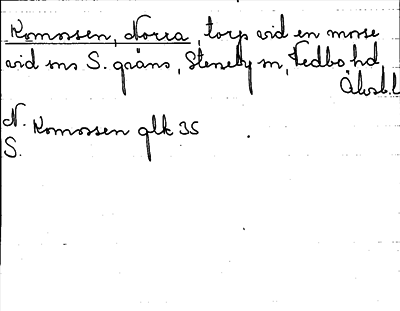 Komossen, Norra, torp vid en mosse
vid sns S. gräns, Steneby sn, Vedbo hd
Älvsb. l
N. Komossen glk 35
S.